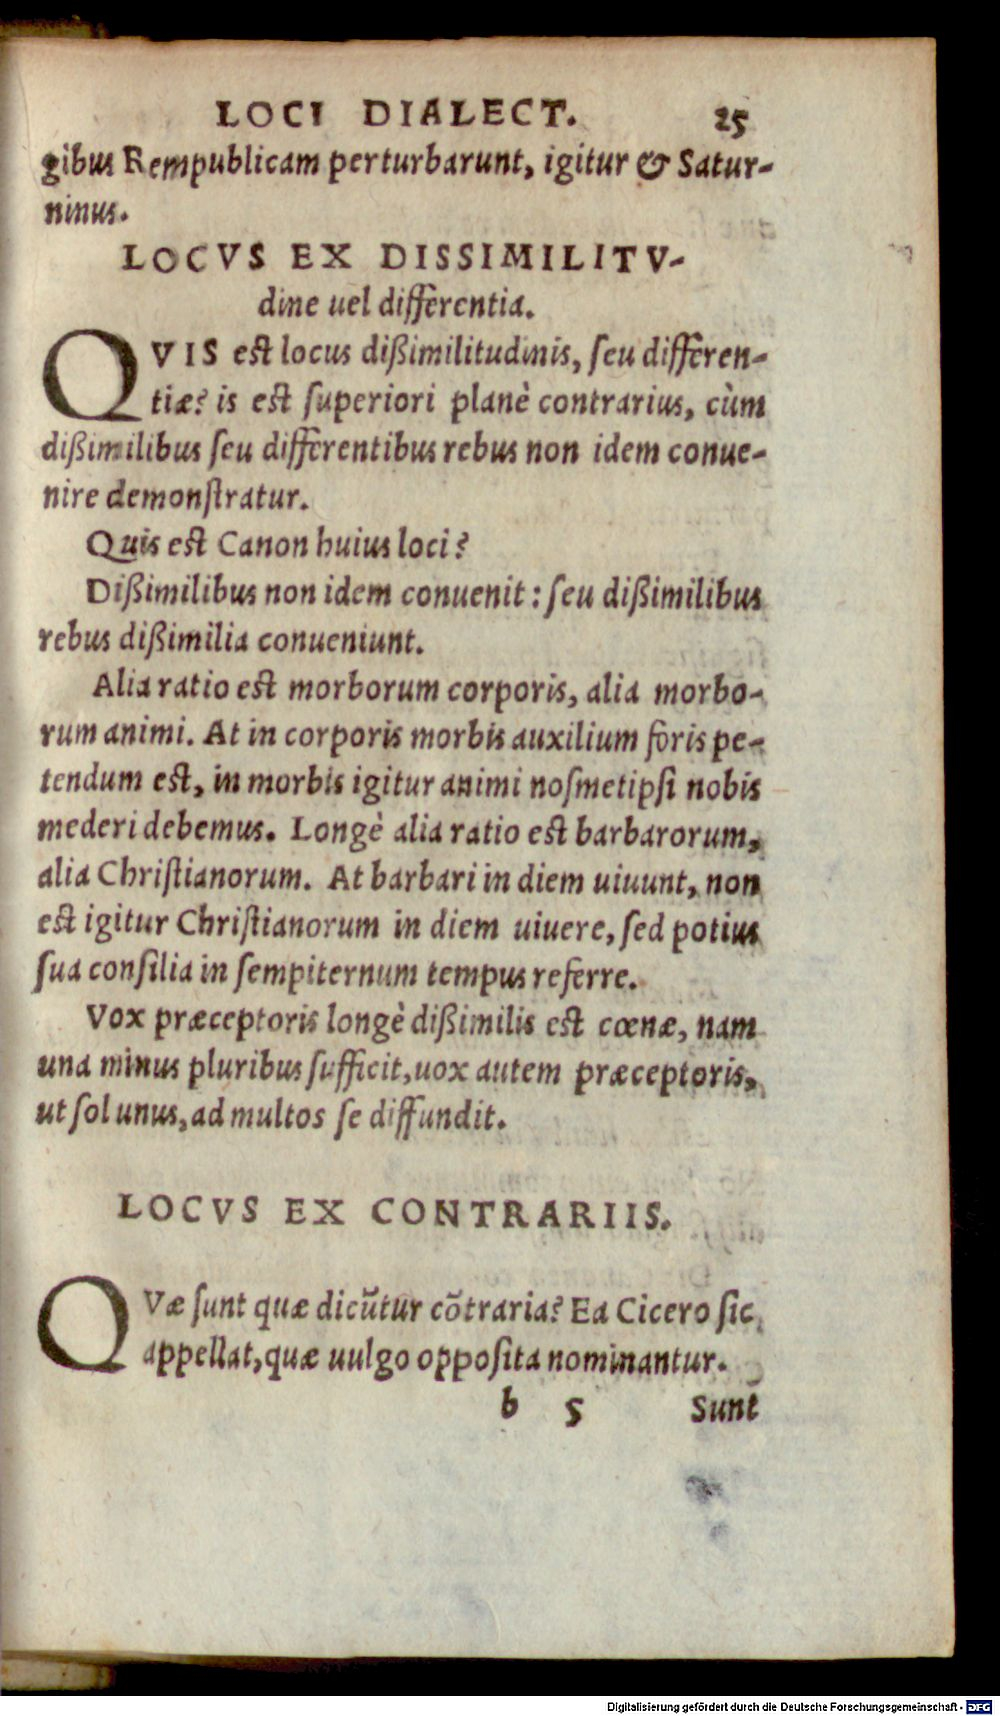 LOCI DIALECT. 25
gibus Rempublicam perturbarunt, igitur & Satur-
ninus.
LOCVS EX DISSIMILITV-
dine uel differentia.
QVIS est locus dißimilitudinis, ſeu differen-
tiæ? is est ſuperiori planè contrarius, cùm
dißimilibus ſeu differentibus rebus non idem conue-
nire demonſtratur.
Quis est Canon huius loci?
Dißimilibus non idem conuenit: ſeu dißimilibus
rebus dißimilia conueniunt.
Alia ratio est morborum corporis, alia morbo-
rum animi. At in corporis morbis auxilium foris pe-
tendum est, in morbis igitur animi noſmetipſi nobis
mederi debemus. Longè alia ratio est barbarorum,
alia Chriſtianorum. At barbari in diem uiuunt, non
est igitur Chriſtianorum in diem uiuere, ſed potius
ſua conſilia in ſempiternum tempus referre.
Vox præceptoris longè dißimilis est cœnæ, nam
una minus pluribus ſufficit, uox autem præceptoris,
ut ſol unus, ad multos ſe diffundit.
LOCVS EX CONTRARIIS.
QVæ ſunt quæ dicũtur cõtraria? Ea Cicero ſic
appellat, quæ uulgo oppoſita nominantur.
b 5 Sunt
Digitalisierung gefördert durch die Deutsche Forschungsgemeinschaft - DFG